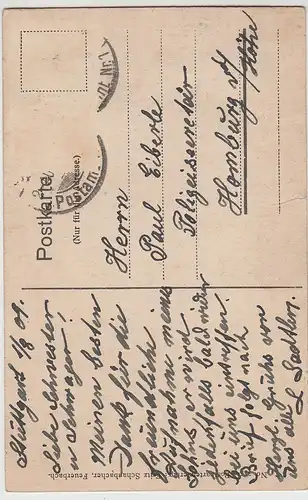 Postkarte
(Nur für die Adresse.)
Herrn
Paul Eiberle
Polizeisecretär
Homburg v/d
Höhe
Stuttgart 1/8 09.
Lieber Schwester
u. Schwager!
Meinen besten
Dank für die
freundliche
Aufnahme meines
Sohnes er wird
jedenfalls bald wieder
bei uns eintreffen.
Brief folgt nach
Herzl. Gruss von
uns allen
Schaubacher, Feuerbach